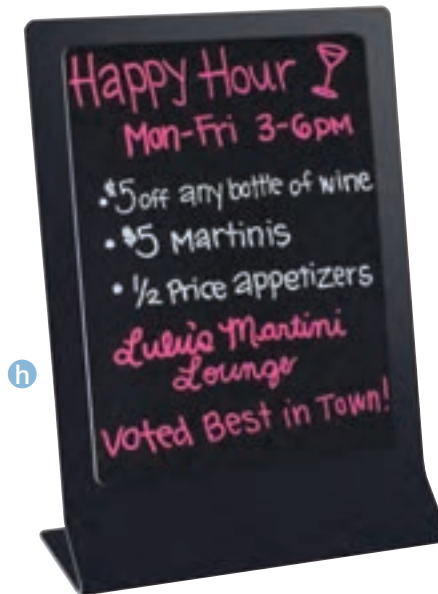 Happy Hour
Mon-Fri 3-6pm
• $5 off any bottle of wine
• $5 Martinis
• 1/2 Price appetizers
Lulu's Martini
Lounge
Voted Best in Town!
h